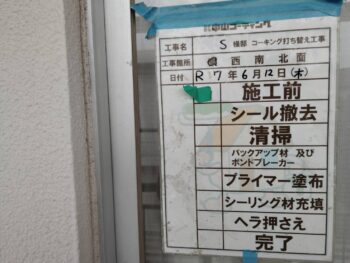 中山コーティング
工事名 S 様邸 コーキング打ち替え工事
工事箇所 東 西 南 北 面
日付 R 7 年 6 月 12 日 (木)
施工前
シール撤去
清掃
バックアップ材 及び
ボンドブレーカー
プライマー塗布
シーリング材充填
ヘラ押さえ
完了